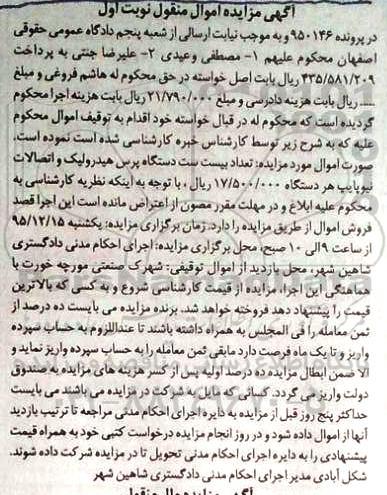 آگهی مزایده اموال منقول نوبت اول
در پرونده ۹۵۰۱۴۶ و به موجب نیابت ارسالی از شعبه پنجم دادگاه عمومی حقوقی
اصفهان محکوم علیهم ۱- مصطفی وعیدی ۲- علیرضا جنتی به پرداخت
۴۳۵/۵۸۱/۲۰۹ ریال بابت اصل خواسته در حق محکوم له هاشم فروغی و مبلغ
..... ریال بابت هزینه دادرسی و مبلغ ۲۱/۷۹۰/۰۰۰ ریال بابت هزینه اجرا محکوم
گردیده است که محکوم له در قبال خواسته خود اقدام به توقیف اموال محکوم
علیه که به شرح زیر توسط کارشناس خبره کارشناسی شده است نموده است.
صورت اموال مورد مزایده: تعداد بیست ست دستگاه پرس هیدرولیک و اتصالات
نیوپایپ هر دستگاه ۱۷/۵۰۰/۰۰۰ ریال ، با توجه به اینکه نظریه کارشناسی به
محکوم علیه ابلاغ و در مهلت مقرر مصون از اعتراض مانده است این اجرا قصد
فروش اموال از طریق مزایده را دارد. زمان برگزاری مزایده: یکشنبه ۹۵/۱۲/۱۵
از ساعت ۹ الی ۱۰ صبح، محل برگزاری مزایده: اجرای احکام مدنی دادگستری
شاهین شهر، محل بازدید از اموال توقیفی: شهرک صنعتی مورچه خورت با
هماهنگی این اجرا، مزایده از قیمت کارشناسی شروع و به کسی که بالاترین
قیمت را پیشنهاد دهد فروخته خواهد شد. برنده مزایده می بایست ده درصد از
ثمن معامله را فی المجلس به همراه داشته باشند تا عنداللزوم به حساب سپرده
واریز و تا یک ماه فرصت دارد مابقی ثمن معامله را به حساب سپرده واریز نماید و
الا ضمن ابطال مزایده ده درصد اولیه پس از کسر هزینه های مزایده به صندوق
دولت واریز می گردد. کسانی که مایل به شرکت در مزایده می باشند می بایست
حداکثر پنج روز قبل از مزایده به دایره اجرای احکام مدنی مراجعه تا ترتیب بازدید
آنها از اموال داده شود و در روز انجام مزایده درخواست کتبی خود به همراه قیمت
پیشنهادی را به دایره اجرای احکام مدنی تحویل تا در مزایده شرکت داده شوند.
شکل آبادی مدیر اجرای احکام مدنی دادگستری شاهین شهر